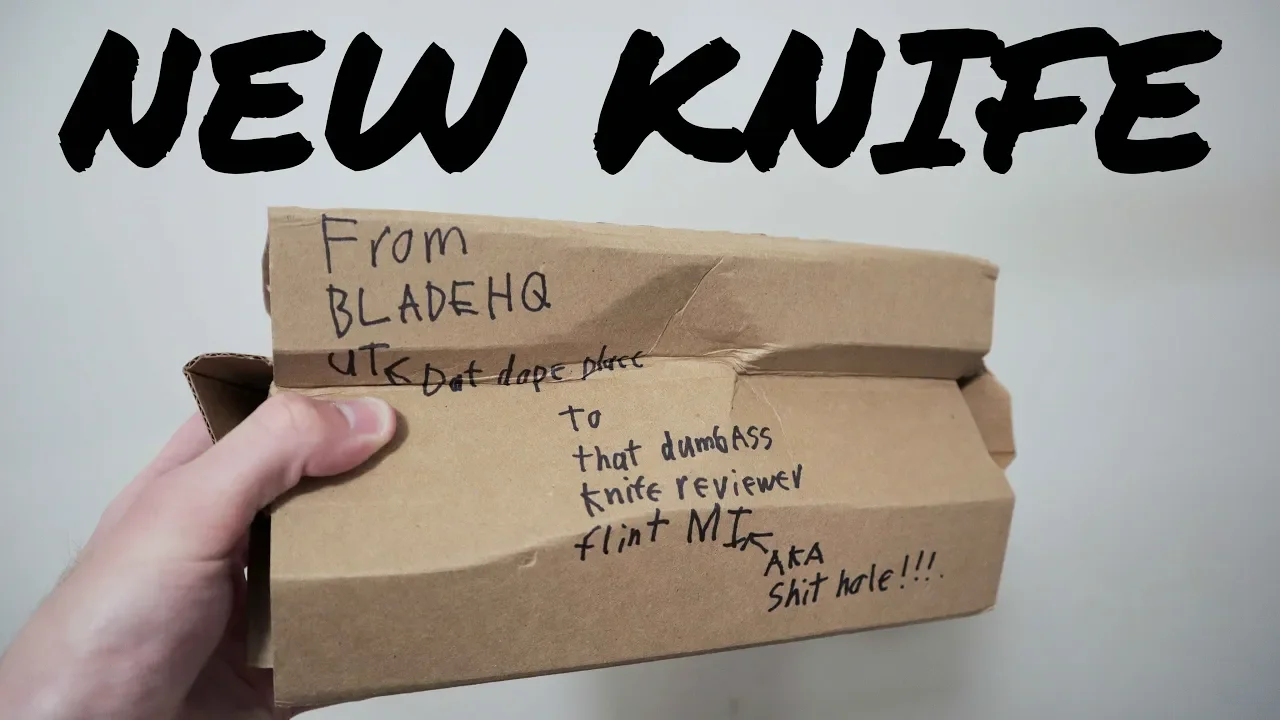 NEW KNIFE
From
BLADEHQ
UT < Dat dope place
to
that dumbASS
knife reviewer
flint MI <
AKA
Shit hole!!!.